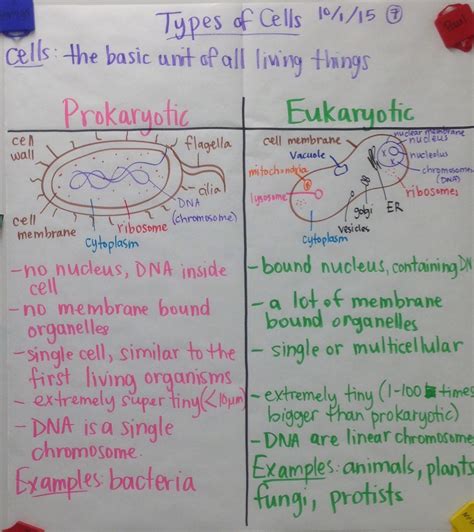 Types of Cells 10/1/15 7
Cells: the basic unit of all living things
Prokaryotic
cell wall
flagella
cilia
DNA (chromosome)
ribosome
cytoplasm
cell membrane
-no nucleus, DNA inside
cell
-no membrane bound
organelles
-single cell, similar to the
first living organisms
- extremely super tiny (<10µm)
- DNA is a single
chromosome.
Examples: bacteria
Eukaryotic
cell membrane
nuclear membrane
nucleus
nucleolus
chromosome
(DNA)
ribosomes
Vacuole
mitochondria
lysosome
golgi
ER
vesicles
cytoplasm
- bound nucleus, containing DN
- a lot of membrane
bound organelles
- single or multicellular
- extremely tiny (1-100 times
bigger than prokaryotic)
- DNA are linear chromosome
Examples: animals, plants
fungi, protists